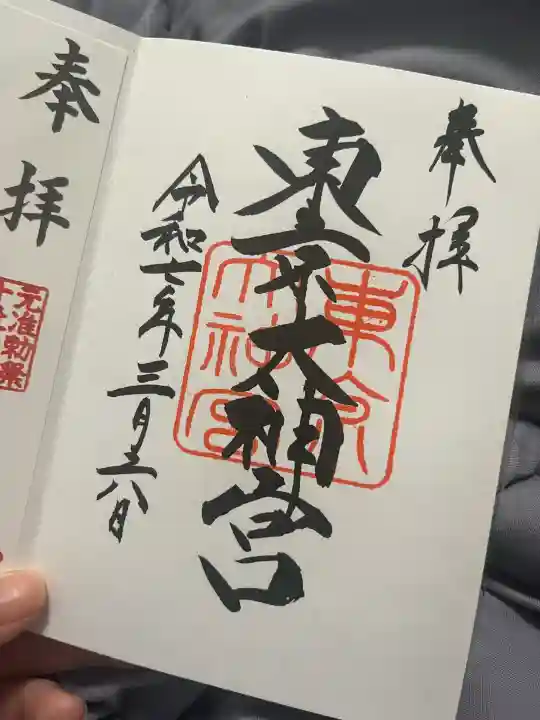 奉拝
東京大神宮
東京
大神宮
令和七年三月二八日
奉拝
元准勅祭
十社